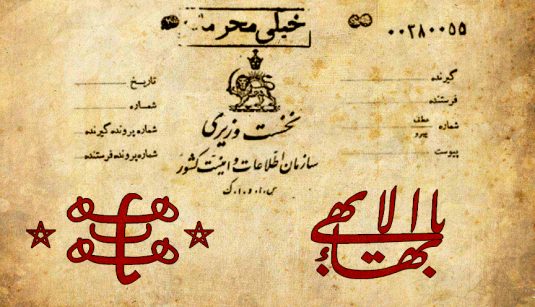 خیلی محرمانه
۰۰۲۸۰۰۵۵
گیرنده
فرستنده
شماره عطف
پیرو
پیوست
تاریخ
شماره
شماره پرونده گیرنده
شماره پرونده فرستنده
نخست وزیری
سازمان اطلاعات و امنیت کشور
س.ا.و.ا.ک
یا بهاء الابهی